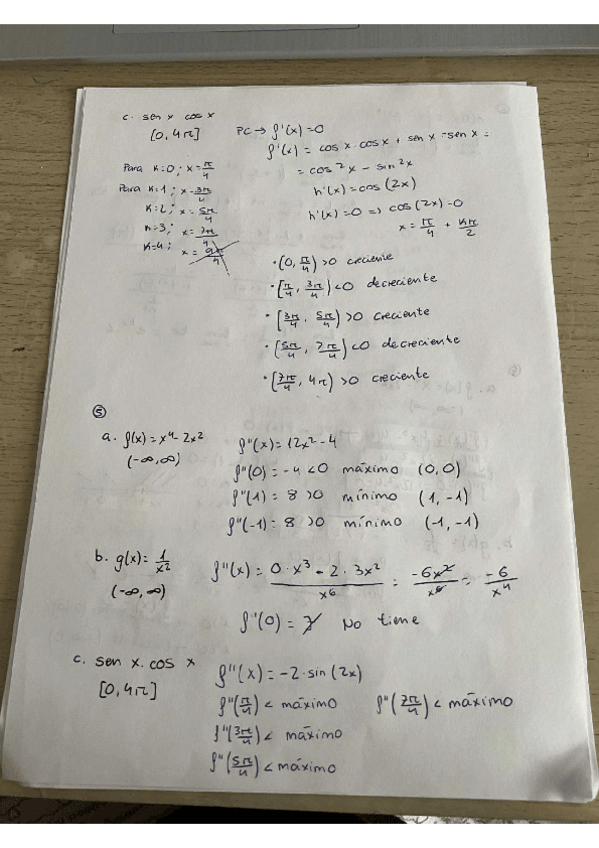 c. sen x cos x
[0, 4π]
PC → f'(x) = 0
f'(x) = cos x · cos x + sen x · -sen x =
= cos²x - sin²x
h'(x) = cos (2x)
h'(x) = 0 => cos (2x) = 0
x = π/4 + kπ/2
Para k=0; x = π/4
Para k=1; x = 3π/4
k=2; x = 5π/4
k=3; x = 7π/4
k=4; x = 9π/4
• (0, π/4) >0 creciente
• [π/4, 3π/4) <0 decreciente
• [3π/4, 5π/4) >0 creciente
• [5π/4, 7π/4) <0 decreciente
• [7π/4, 4π) >0 creciente
⑤
a. f(x) = x⁴ - 2x²
(-∞, ∞)
f''(x) = 12x² - 4
f''(0) = -4 <0 máximo (0, 0)
f''(1) = 8 >0 mínimo (1, -1)
f''(-1) = 8 >0 mínimo (-1, -1)
b. g(x) = 1/x²
(-∞, ∞)
f''(x) = 0 · x³ - 2 · 3x² / x⁶ = -6x² / x⁶ = -6 / x⁴
f''(0) = ∄ No tiene
c. sen x · cos x
[0, 4π]
f''(x) = -2 · sin (2x)
f''(π/4) < máximo f''(7π/4) < máximo
f''(3π/4) < máximo
f''(5π/4) < máximo